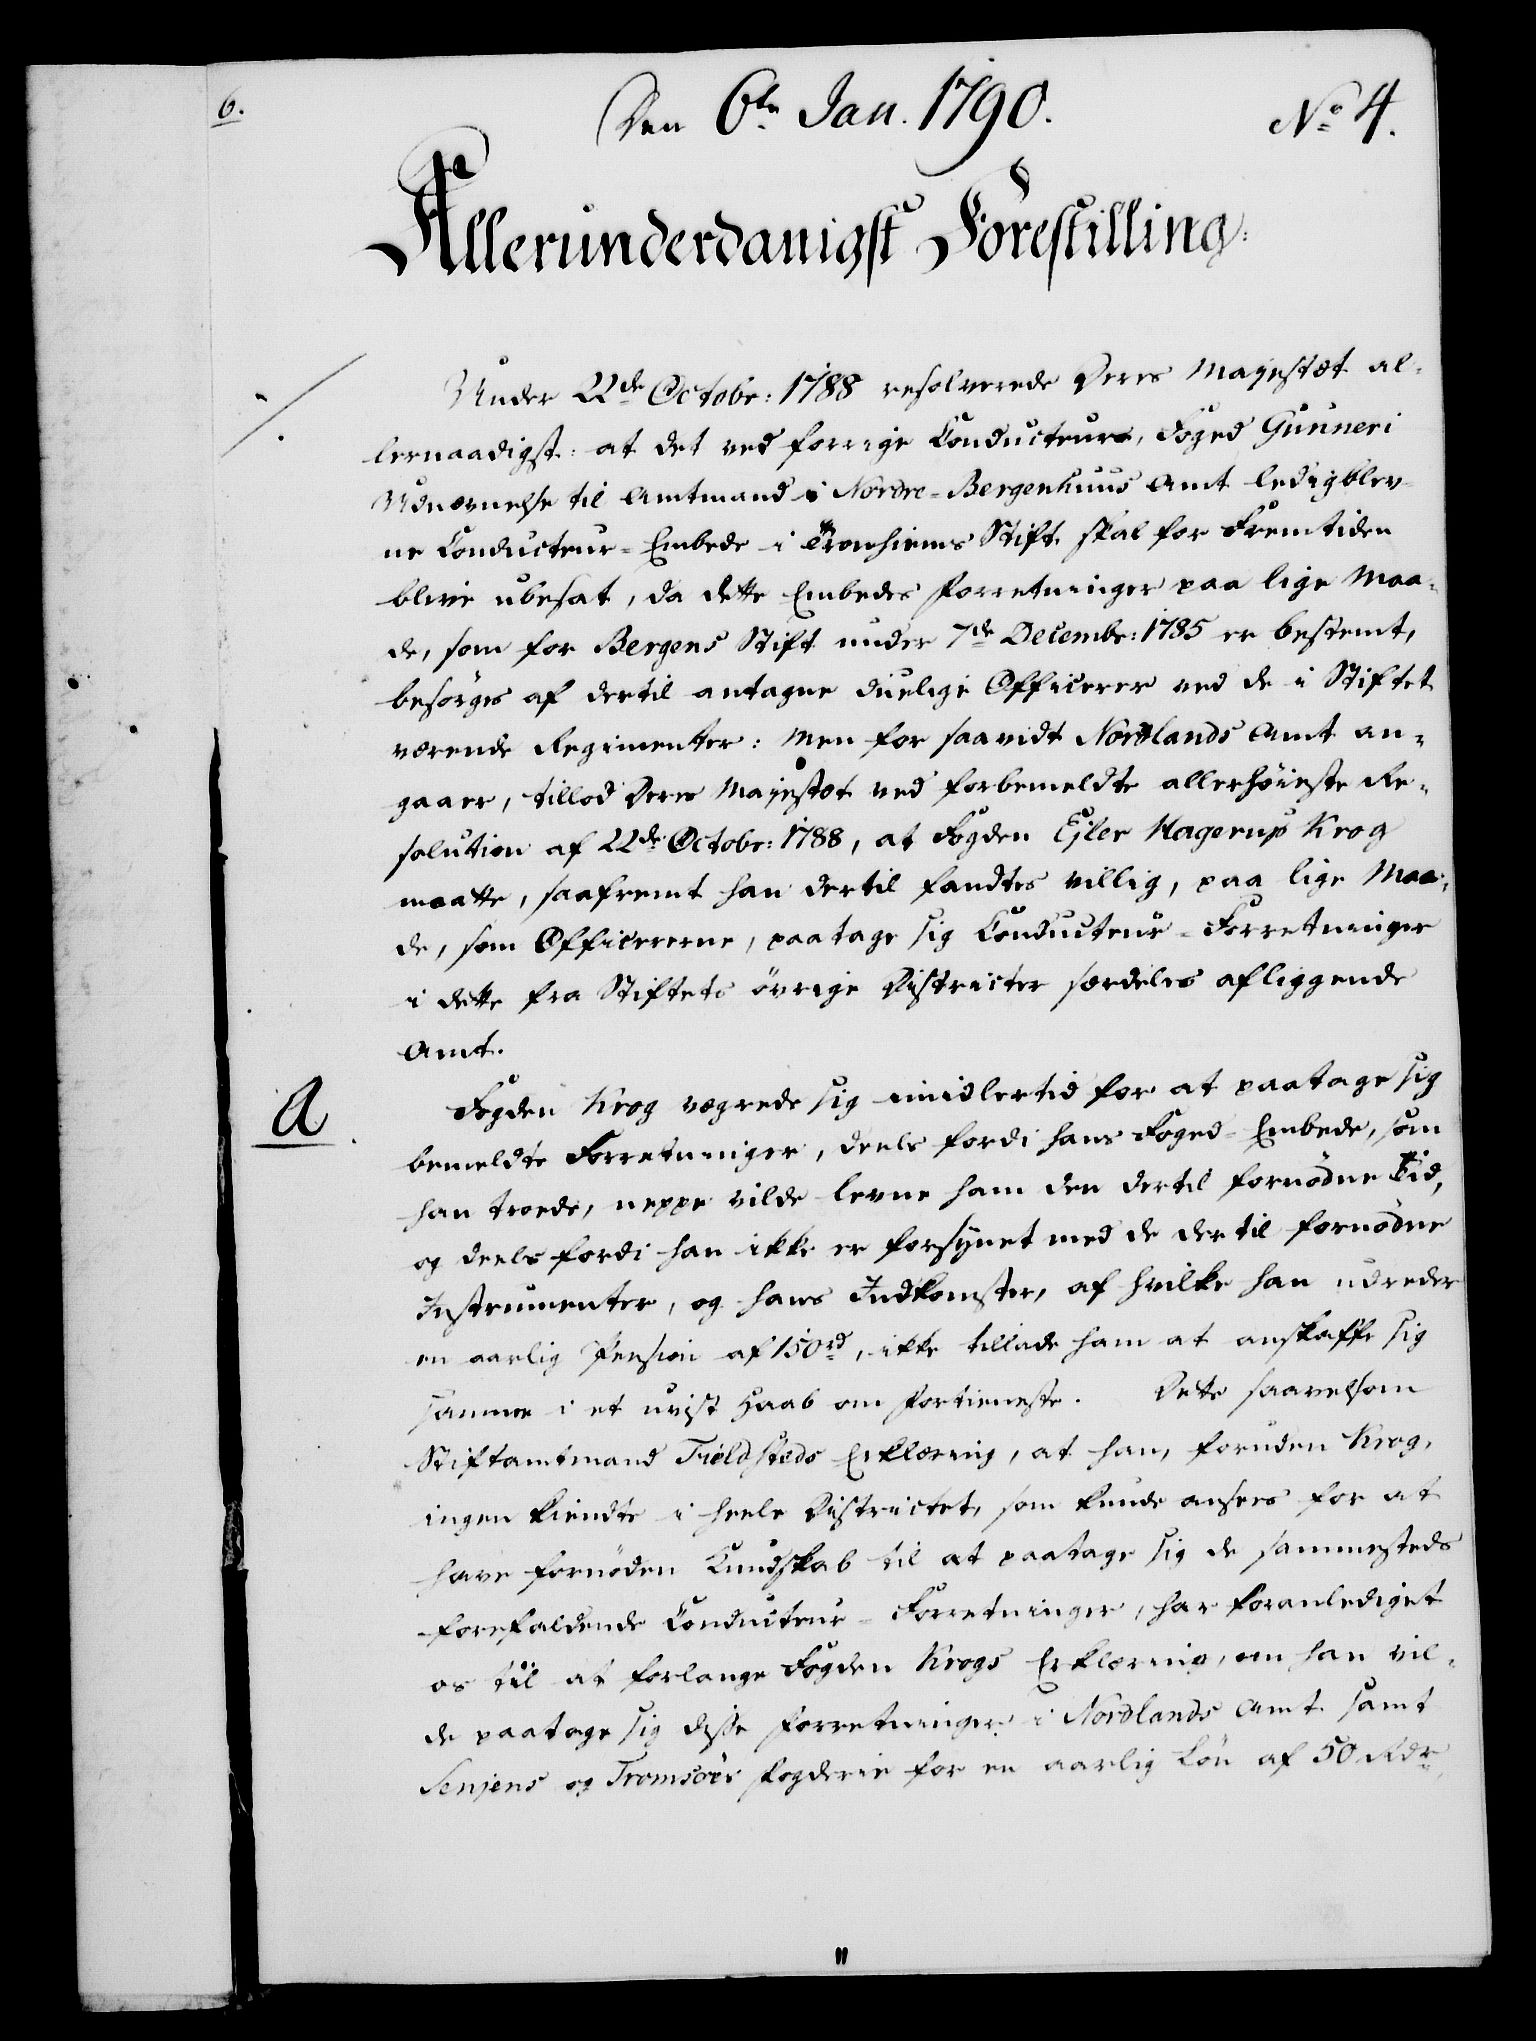 6.
Den 6te Jan. 1790.
No 4.
Allerunderdanigst Forestilling:
Under 22de Octobr: 1788 resolverede Deres Majestæt al-
lernaadigst: at det ved forrige Conducteurs, Foged Gunneri
Udnævnelse til Amtmand i Nordre-Bergenhuus Amt ledigblev-
ne Conducteur-Embede i Tronhiems Stift skal for Fremtiden
blive ubesat, da dette Embedes Forretninger paa lige Maa-
de, som for Bergens Stift under 7de Decembr: 1785 er bestemt,
besørges af dertil antagne duelige Officerer ved de i Stiftet
værende Regimenter: Men for saavidt Nordlands Amt an-
gaaer, tillod Deres Majestæt ved forbemeldte allerhøieste Re-
solution af 22de Octobr: 1788, at Fogden Ejler Hagerup Krog
maatte, saafremt han dertil fandtes villig, paa lige Maa-
de, som Officererne, paatage sig Conducteur-Forretninger
i dette fra Stiftets øvrige Districter særdeles afliggende
Amt.
A
Fogden Krog vægrede sig imidlertid for at paatage sig
bemeldte Forretninger, deels fordi hans Foged-Embede, som
han troede, neppe vilde levne ham den dertil fornødne Tid,
og deels fordi han ikke er forsynet med de dertil fornødne
Instrumenter, og hans Indkomster, af hvilke han udreder
en aarlig Pension af 150 rd, ikke tillade ham at anskaffe sig
samme i et uvist Haab om Fortieneste. Dette saavelsom
Stiftamtmand Fieldsteds Erklæring, at han, foruden Krog,
ingen kiendte i heele Districtet, som kunde ansees for at
have fornøden Kundskab til at paatage sig de sammesteds
forefaldende Conducteur-Forretninger, har foranlediget
os til at forlange Fogden Krogs Erklæring, om han vil-
de paatage sig disse Forretninger i Nordlands Amt samt
Senjens og Tromsøes Fogderie for en aarlig Løn af 50 Rdr